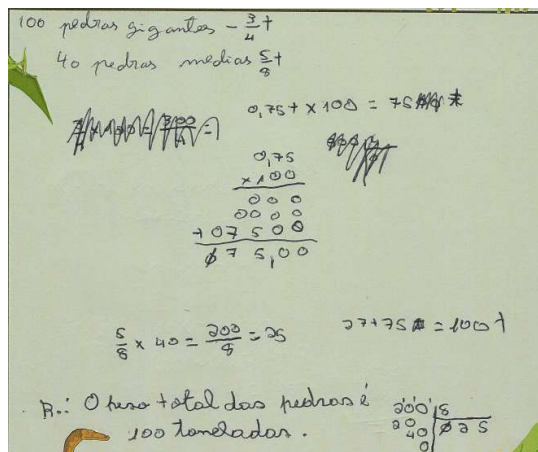 100 pedras gigantes - 3/4 t
40 pedras médias 5/8 t
0,75 t x 100 = 75 t
0,75
x 100
000
0000
+ 07500
075,00
5/8 x 40 = 200/8 = 25
27+75 = 100 t
R.: O peso total das pedras é
100 toneladas.
200 8
20 025
40
0